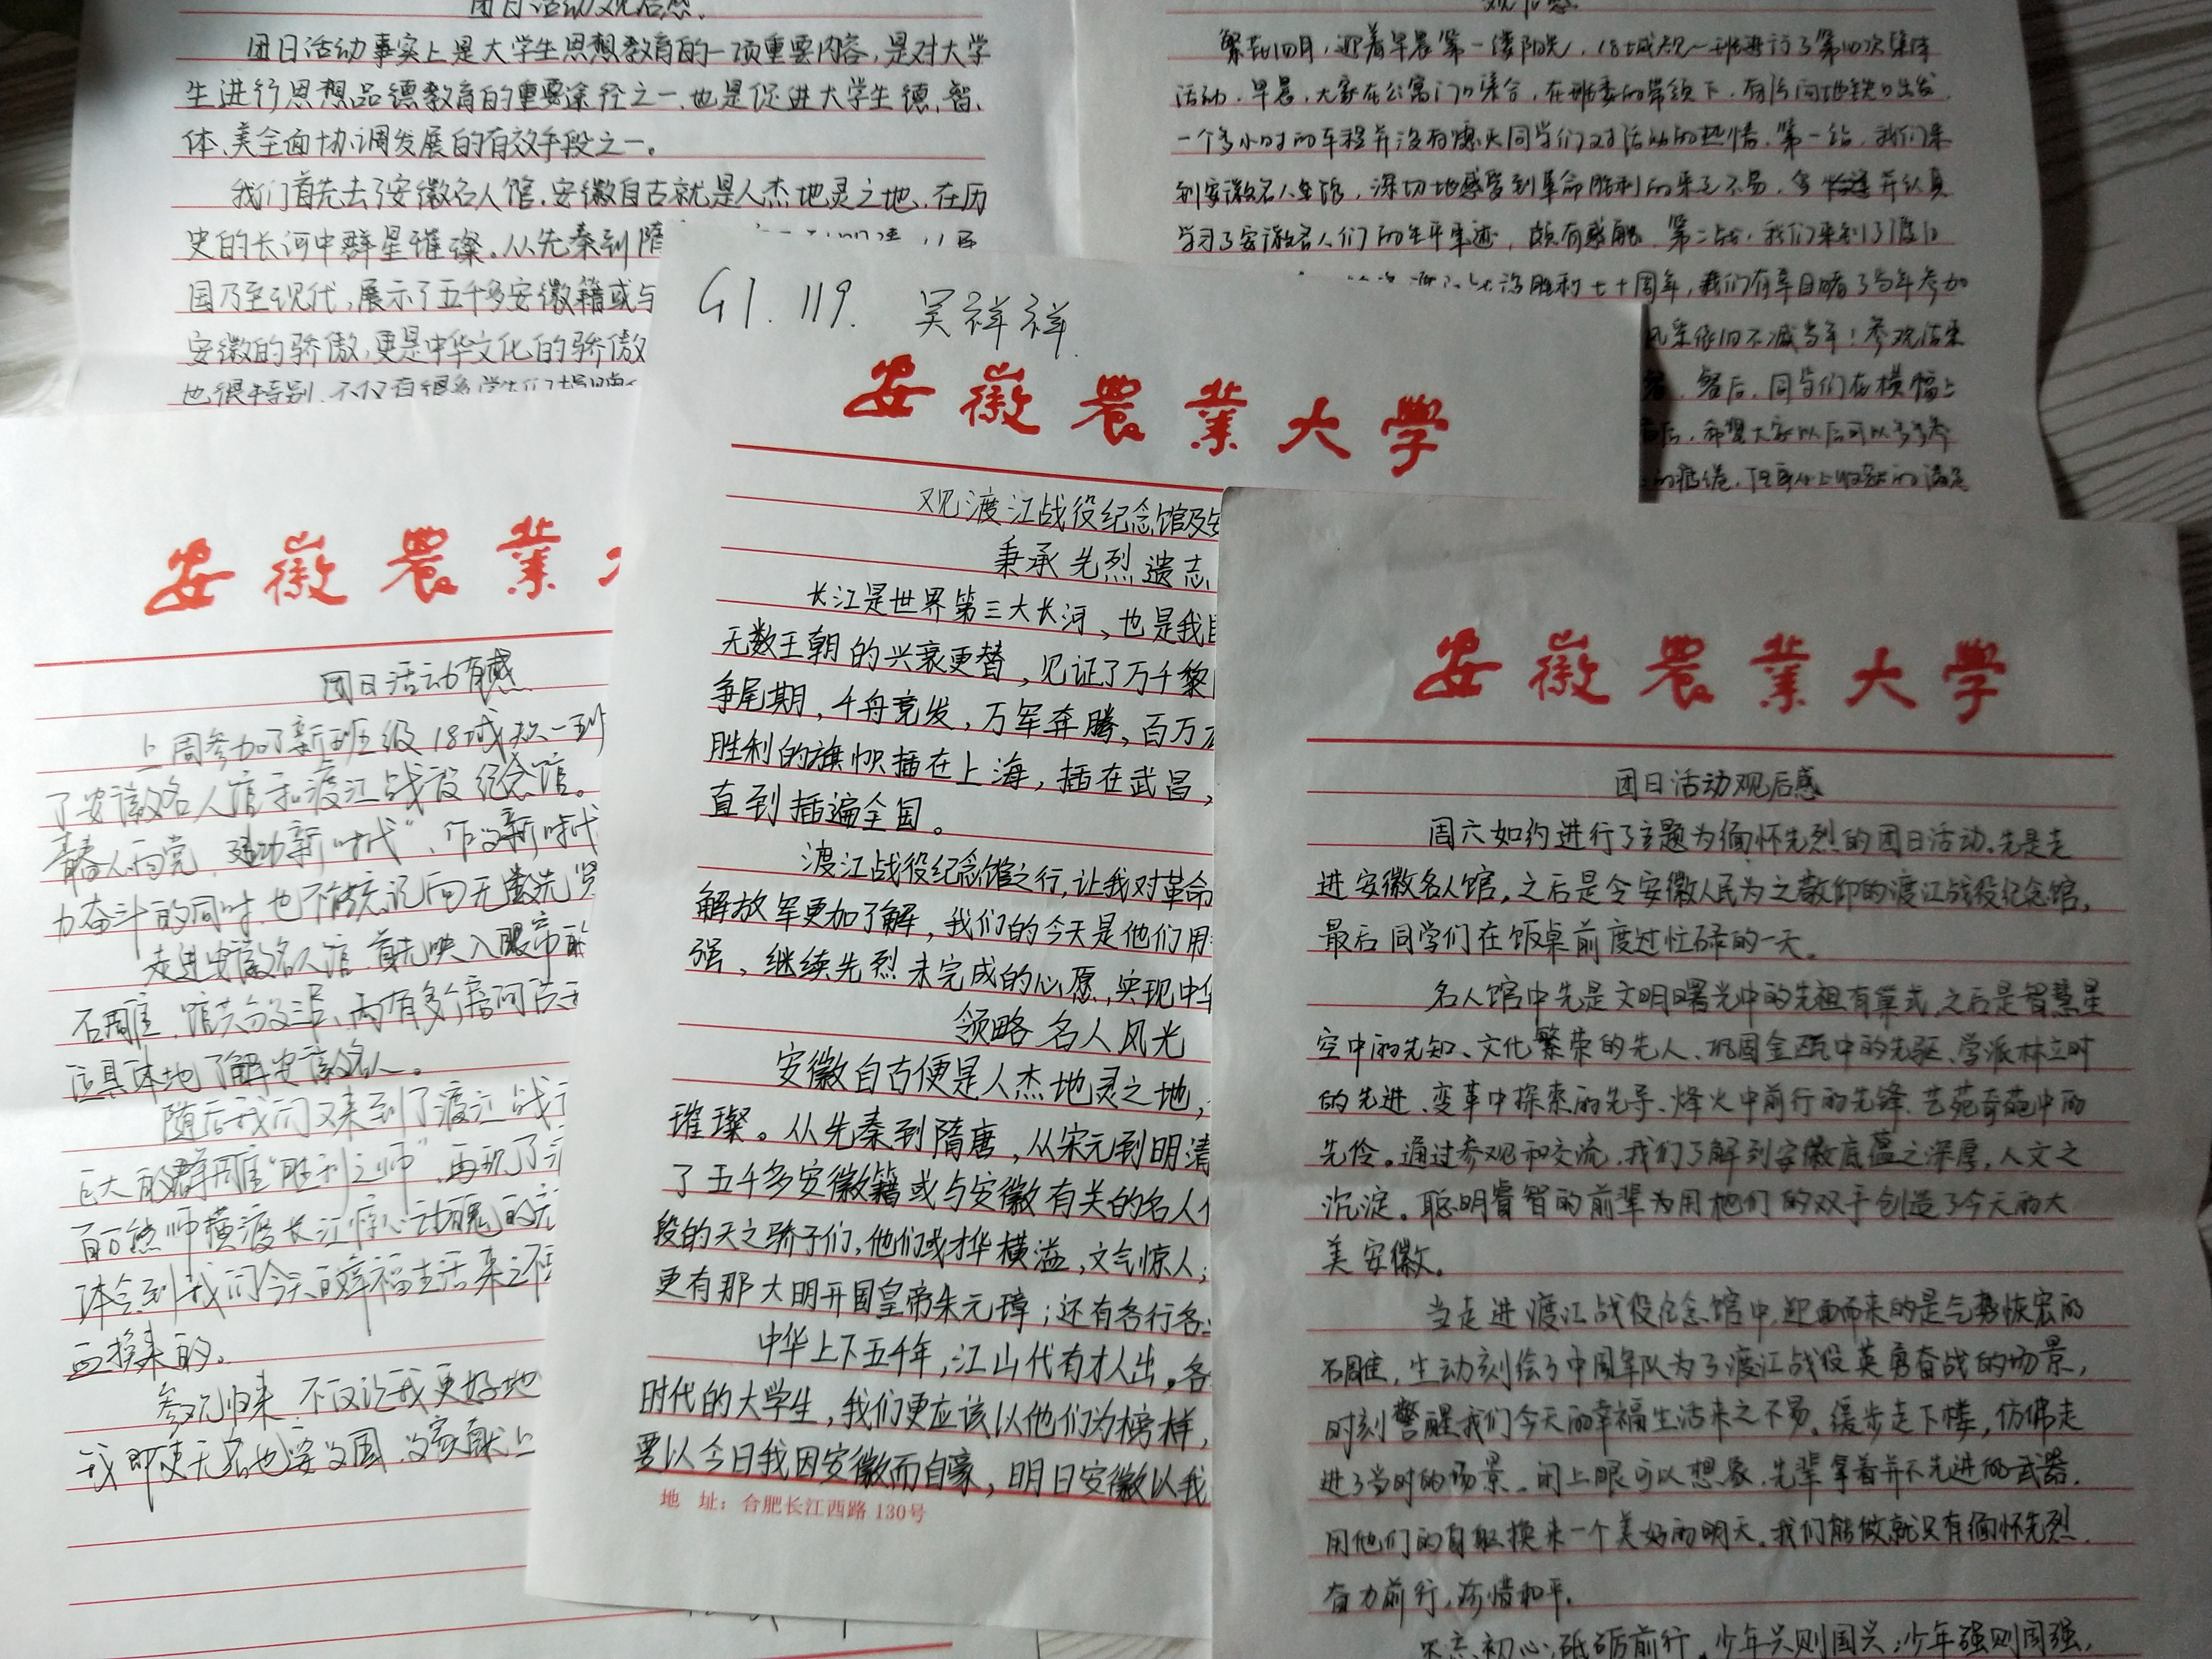 团日活动观后感.
团日活动事实上是大学生思想教育的一项重要内容,是对大学
生进行思想品德教育的重要途径之一,也是促进大学生德、智、
体、美全面协调发展的有效手段之一。
我们首先去了安徽名人馆.安徽自古就是人杰地灵之地,在历
史的长河中群星璀璨。从先秦到隋
国乃至现代,展示了五千多安徽籍或与
安徽的骄傲,更是中华文化的骄傲
也很特别,不仅有很多
观后感
繁花四月,迎着早晨第一缕阳光,18城规一班进行了第四次集体
活动.早晨,大家在公寓门口集合,在班委的带领下,有序向地铁口出发
一个多小时的车程并没有熄灭同学们对活动的热情.第一站,我们来
到安徽名人馆,深切地感受到革命胜利的来之不易,并认真
学习了安徽名人们的生平事迹,颇有感触.第二站,我们来到了渡江
胜利七十周年,我们有幸目睹了当年参加
风采依旧不减当年!参观结束
餐后,同学们在横幅上
希望大家以后可以多多参
G1.119. 吴祥祥
安徽农业大学
观渡江战役纪念馆及
秉承先烈遗志
长江是世界第三大长河,也是我
无数王朝的兴衰更替,见证了万千黎
争尾期,千舟竞发,万军奔腾,百万
胜利的旗帜插在上海,插在武昌,
直到插遍全国。
渡江战役纪念馆之行,让我对革命
解放军更加了解,我们的今天是他们用
强、继续先烈未完成的心愿,实现中华
领略名人风光
安徽自古便是人杰地灵之地,
璀璨。从先秦到隋唐,从宋元到明清
了五千多安徽籍或与安徽有关的名人
段的天之骄子们,他们或才华横溢,文气惊人;
更有那大明开国皇帝朱元璋;还有各行各
中华上下五千年,江山代有才人出。各
时代的大学生,我们更应该以他们为榜样,
要以今日我因安徽而自豪,明日安徽以我
地 址:合肥长江西路130号
安徽农业
团日活动有感
上周参加了新班级18城规一
了安徽名人馆和渡江战役纪念馆。
青春心向党,建功新时代”.作为新时代
力奋斗的同时,也不能忘记无数先贤
走进安徽名人馆.首先映入眼帘的
石雕.馆共分
具体地了解安徽名人。
随后我们又来到了渡江战
巨大的群雕“胜利之师”,再现了
百万雄师横渡长江惊心动魄的
体会到我们今天的幸福生活来之不
换来的。
参观归来,不仅让我更好地
我即使无名也要为国、为家献上
安徽农业大学
团日活动观后感
周六如约进行了主题为缅怀先烈的团日活动.先是走
进安徽名人馆,之后是令安徽人民为之敬仰的渡江战役纪念馆,
最后同学们在饭桌前度过忙碌的一天。
名人馆中先是文明曙光中的先祖有巢式,之后是智慧星
空中的先知、文化繁荣的先人、巩固金瓯中的先驱、学派林立时
的先进、变革中探索的先导、烽火中前行的先锋、艺苑奇葩中的
先伶。通过参观和交流,我们了解到安徽底蕴之深厚,人文之
沉淀。聪明睿智的前辈为用他们的双手创造了今天的大
美安徽。
当走进渡江战役纪念馆中,迎面而来的是气势恢宏的
石雕,生动刻绘了中国军队为了渡江战役英勇奋战的场景,
时刻警醒我们今天的幸福生活来之不易。缓步走下楼,仿佛走
进了当时的场景.闭上眼可以想象,先辈拿着并不先进的武器,
用他们的身躯换来一个美好的明天。我们能做就只有缅怀先烈,
奋力前行,珍惜和平。
不忘初心;砥砺前行,少年兴则国兴;少年强则国强,